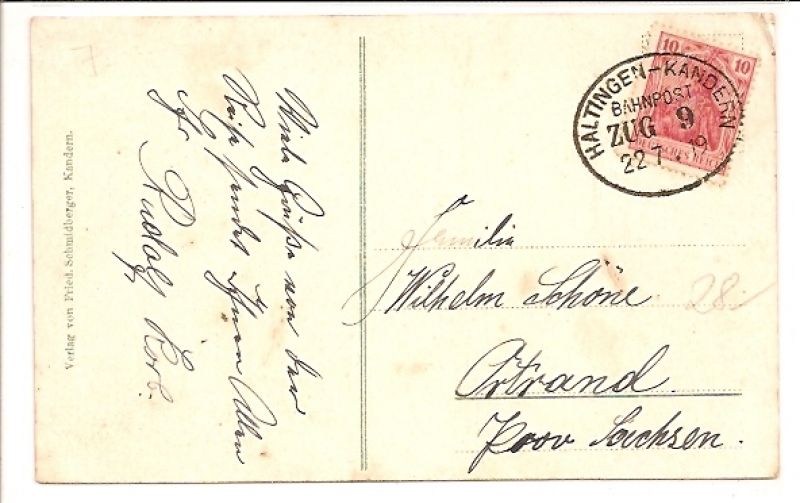 7
Viele Grüße von der
Reise sendet Ihnen Allen
Ihr Rudolf Korb.
Verlag von Fried. Schmidberger, Kandern.
10 10
DEUTSCHES REICH
HALTINGEN-KANDERN
BAHNPOST
ZUG 9
22 7 19
Familie
Wilhelm Schöne
28
Ortrand
Prov Sachsen.